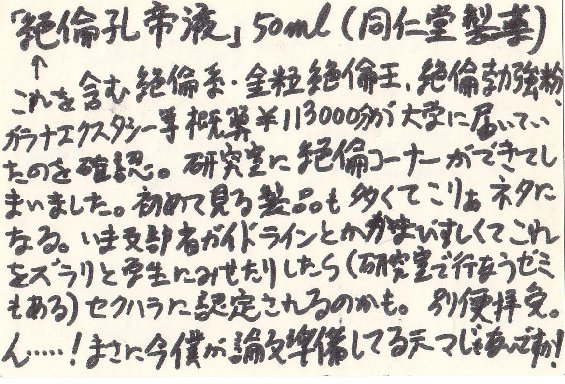 「絶倫孔帝液」50ml(同仁堂製薬)
↑
これを含む絶倫系・金粒絶倫王、絶倫勃強粉、
ガラナエクスタシー等概算¥113000分が大学に届いてい
たのを確認。研究室に絶倫コーナーができてし
まいました。初めて見る製品も多くてこりゃネタに
なる。いま文部省ガイドラインとかがまびすしくてこれ
をズラリと学生にみせたりしたら(研究室で行なうゼミ
もある)セクハラに認定されるのかも。別便拝受。
ん……!まさに今僕が論文準備してるテーマじゃあないですか!